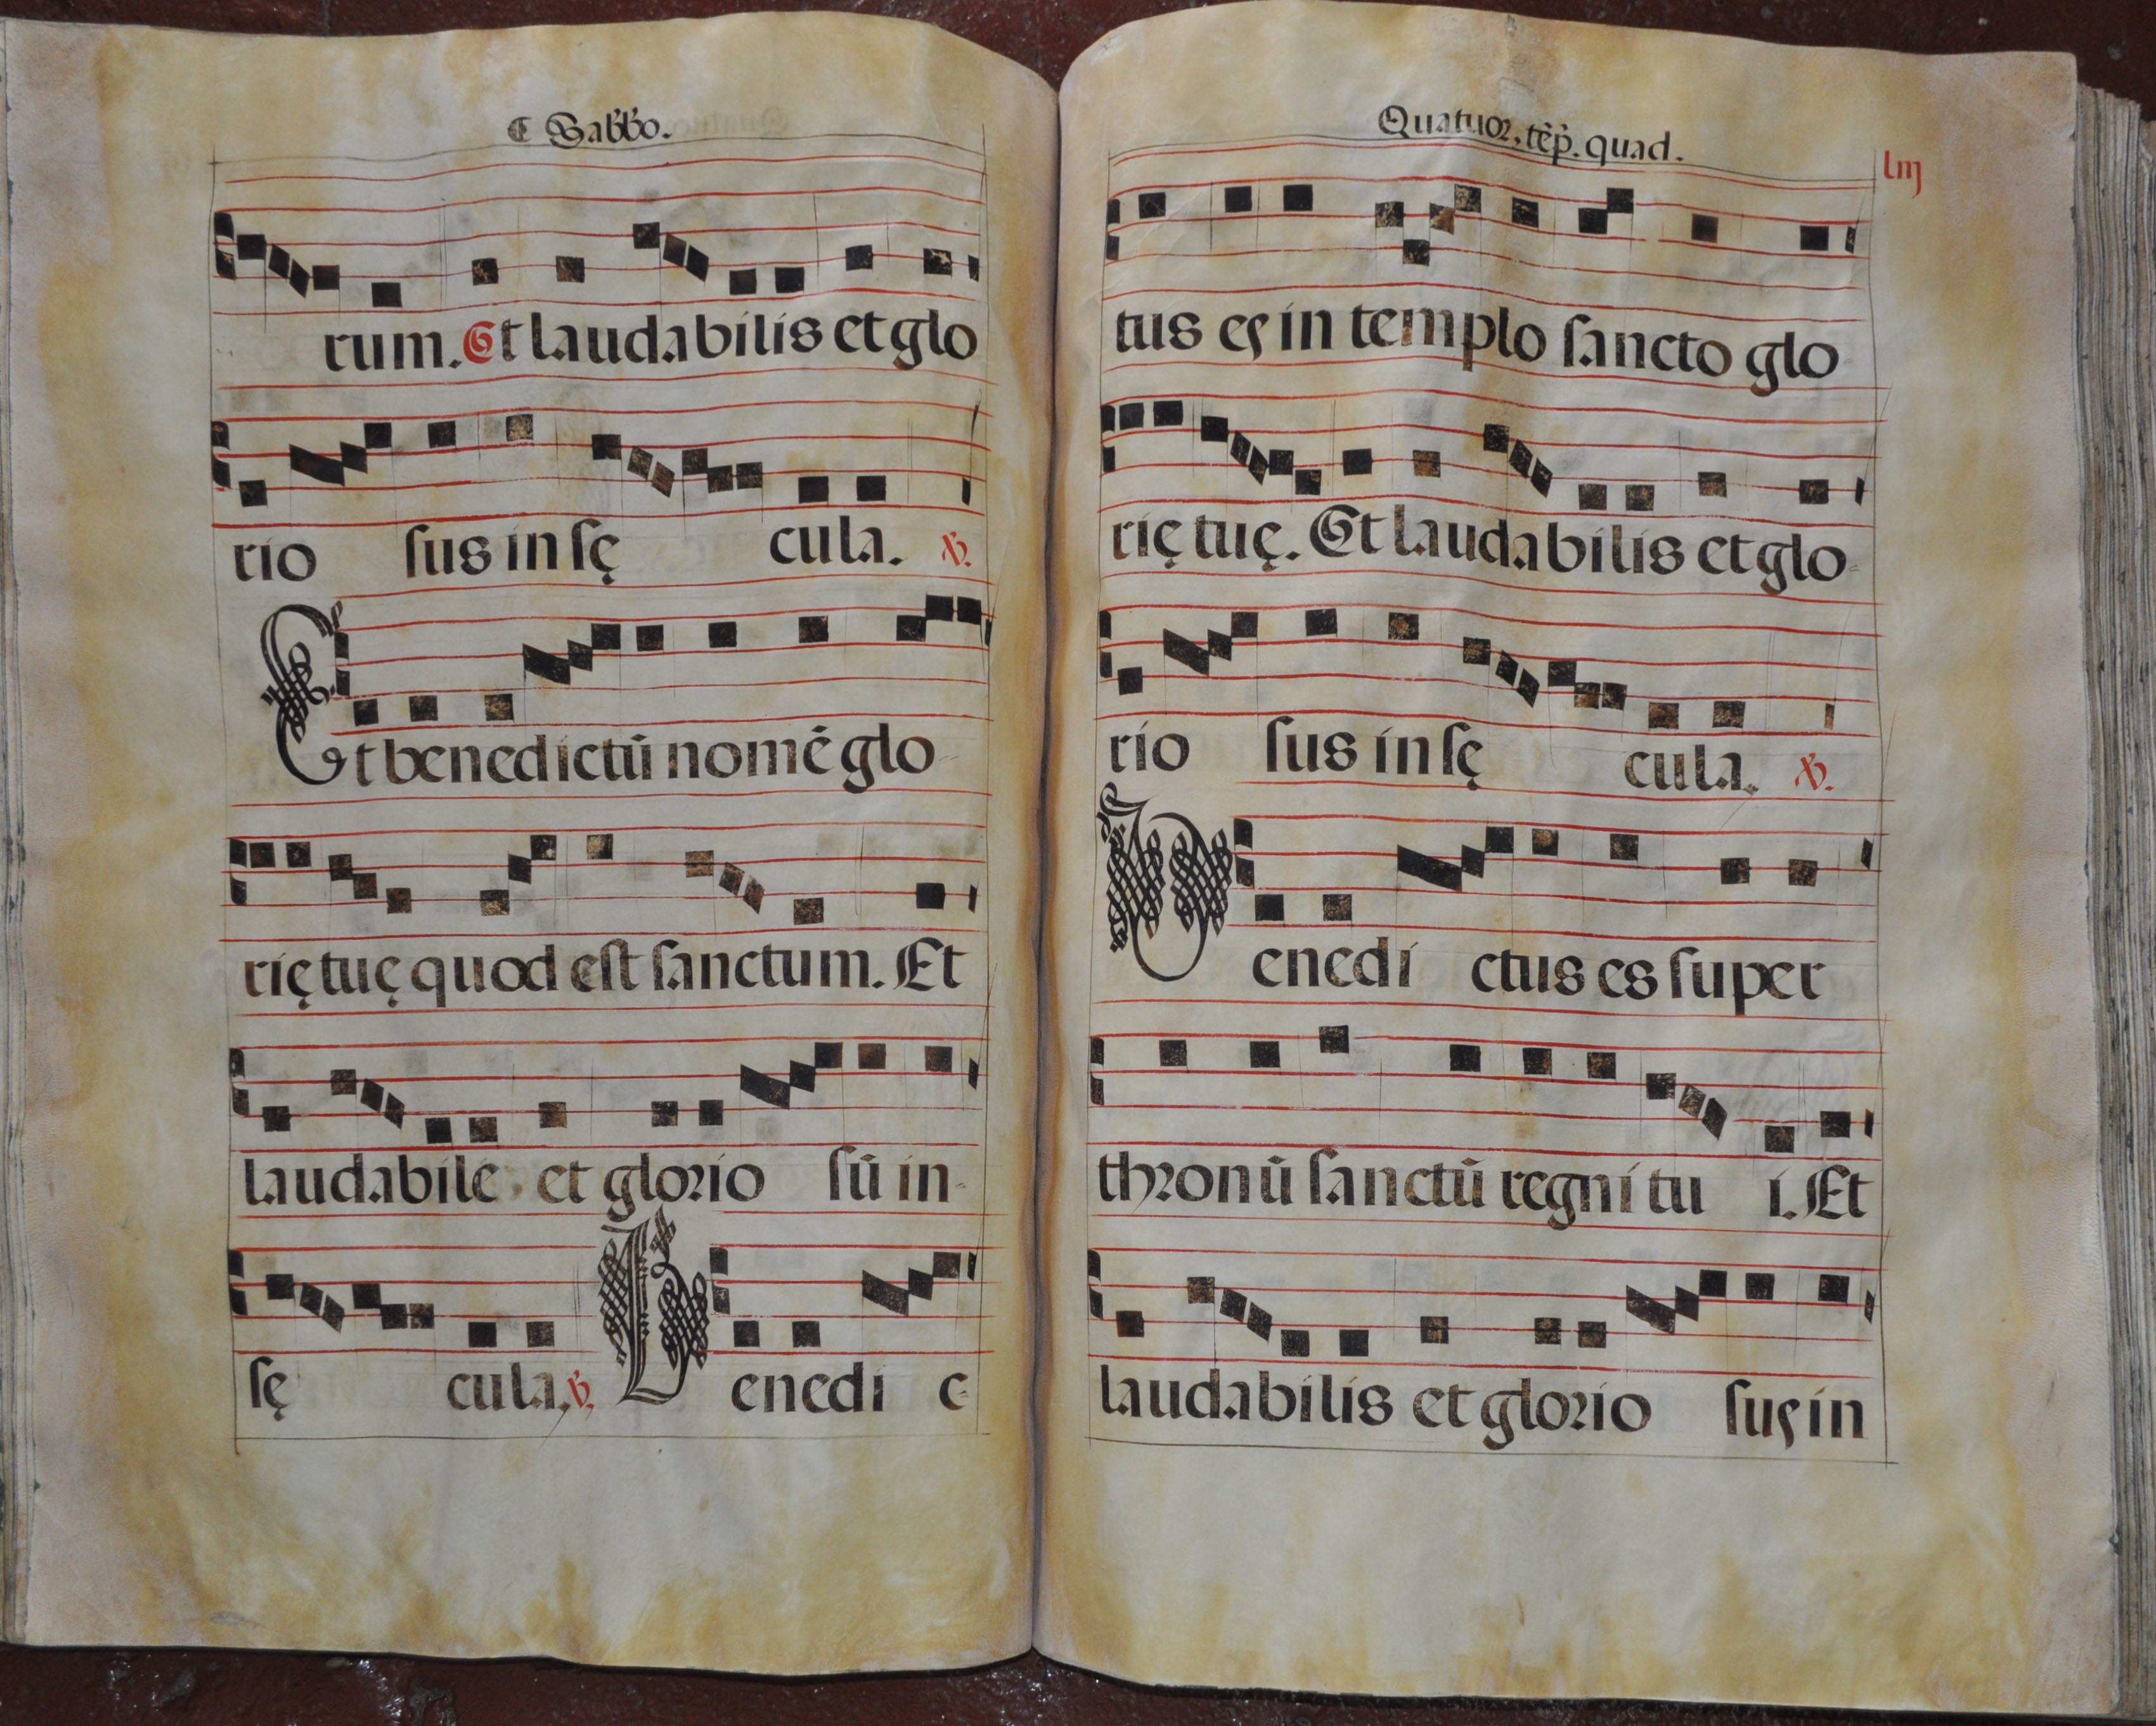 ¶ Sabbo.
rum. Et laudabilis et glo
rio sus in sę cula. ℣.
Et benedictū nomē glo-
rię tuę quod est sanctum. Et
laudabile et glorio sū in-
sę cula. ℣. Benedi c-
Quatuor. tēp. quad.
tus es in templo sancto glo
rię tuę. Et laudabilis et glo-
rio sus in sę cula. ℣.
Benedi ctus es super
thronū sanctū regni tu i. Et
laudabilis et glorio sus in